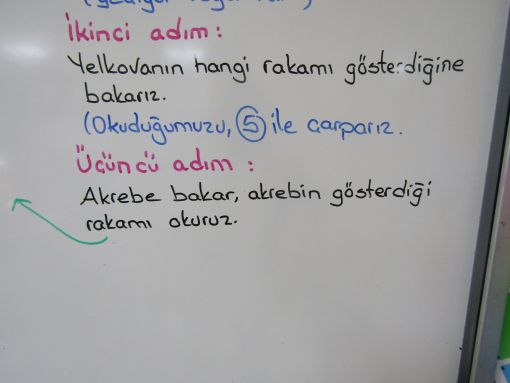 İkinci adım:
Yelkovanın hangi rakamı gösterdiğine
bakarız.
(Okuduğumuzu, 5 ile çarparız.
Üçüncü adım:
Akrebe bakar, akrebin gösterdiği
rakamı okuruz.